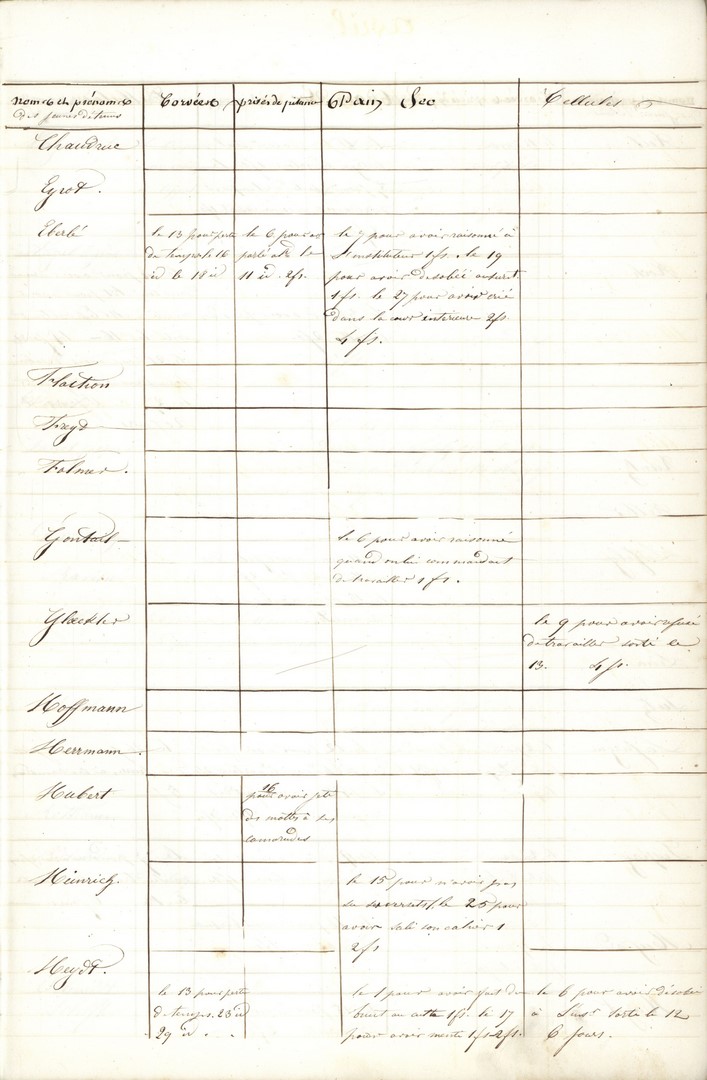 noms et prénoms Corvées privés de pitance Pain Sec Cellules
des jeunes détenus
Chaudruc
Eyrod.
Eberlé
le 13 pour perte
de temps le 16
id le 18 id
le 6 pour av
parlé le
11 id. 2 fs.
le 7 pour avoir raisonné à
l'instituteur 1 fs. le 19
pour avoir desobéi
1 fs. le 27 pour avoir crié
dans la cour intérieure 2 fs.
4 fs.
Flaction
Freyd
Folmer.
Gontard
le 6 pour avoir raisonné
quand on lui commandait
de travailler 1 fs.
Gloeckler
le 9 pour avoir refusé
de travailler sorti le
13. 4 fs.
Hoffmann
Herrmann.
Hubert
16
pour avoir jeté
des mottes à ses
camarades
Heinrich.
le 15 pour n'avoir pas
su le 25 pour
avoir sali son cahier 1
2 fs
Heydt.
le 13 pour perte
de temps. 23 id
29 id.
le 1 pour avoir fait du
bruit au 1 fs. le 17
pour avoir menti 1 fs 2 fs.
le 6 pour avoir désobéi
à sorti le 12
6 jours.